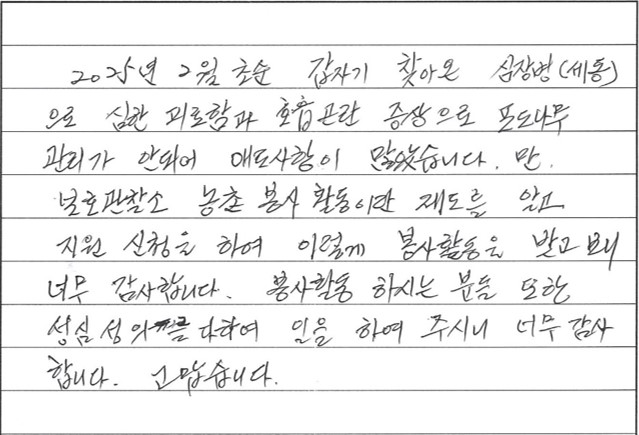 2025년 2월 초순 갑자기 찾아온 심장병(세동)
으로 심한 괴로함과 호흡곤란 증상으로 포도나무
관리가 안되어 애로사항이 많았습니다. 만.
보호관찰소 농촌 봉사 활동이란 제도를 알고
지원 신청을 하여 이렇게 봉사활동을 받고 보니
너무 감사합니다. 봉사활동 하시는 분들 또한
성심 성의를 다하여 일을 하여 주시니 너무 감사
합니다. 고맙습니다.